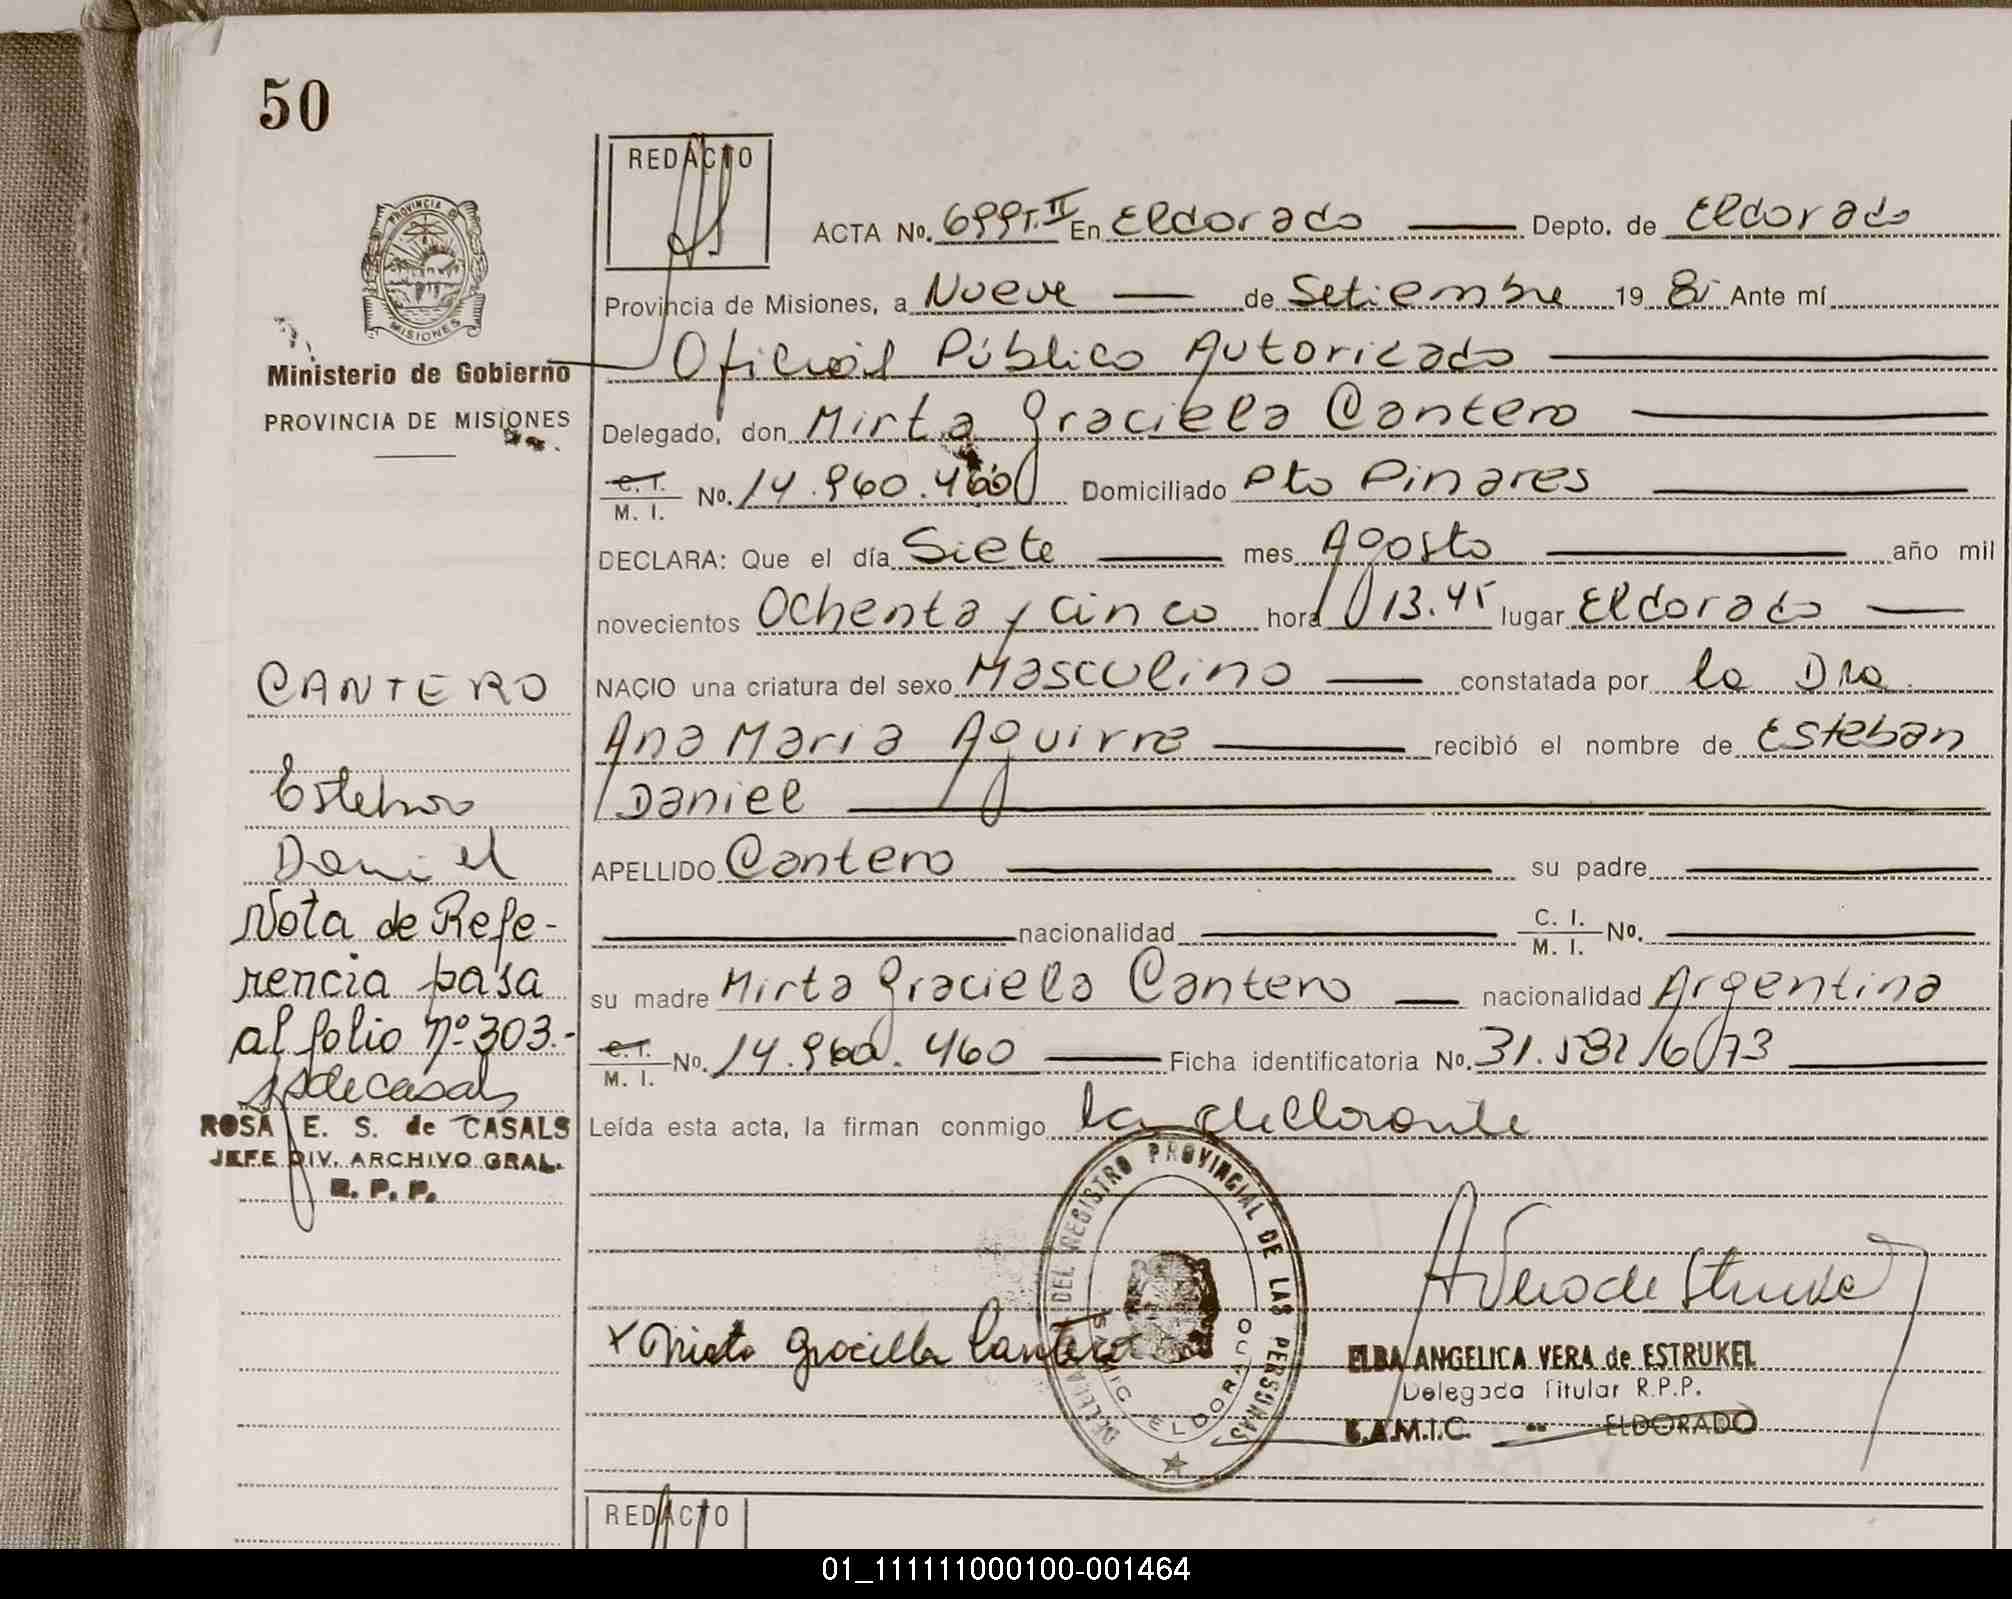 50
REDACTO
ACTA No. 699 T. II En Eldorado Depto. de Eldorado
Provincia de Misiones, a Nueve de Setiembre 19 8 Ante mí
Oficial Público Autorizado
Delegado, don Mirta Graciela Cantero
C. I. M. I. No. 14.960.460 Domiciliado Pto Pinares
DECLARA: Que el día Siete mes Agosto año mil
novecientos Ochenta y Cinco hora 13.45 lugar Eldorado
NACIO una criatura del sexo Masculino constatada por la Dra
Ana Maria Aguirre recibió el nombre de Esteban
Daniel
APELLIDO Cantero su padre
nacionalidad C. I. M. I. No.
su madre Mirta Graciela Cantero nacionalidad Argentina
C. I. M. I. No. 14.960.460 Ficha identificatoria No. 31.582/6073
Leída esta acta, la firman conmigo la declarante
PROVINCIA DE
MISIONES
Ministerio de Gobierno
PROVINCIA DE MISIONES
CANTERO
Esteban
Daniel
Nota de Refe-
rencia pasa
al folio nº 303.-
ROSA E. S. de CASALS
JEFE DIV. ARCHIVO GRAL.
R. P. P.
DEL REGISTRO PROVINCIAL DE LAS PERSONAS
SAMIC ELDORADO
x Mirta Graciela Cantero
ELBA ANGELICA VERA de ESTRUKEL
Delegada Titular R.P.P.
S.A.M.I.C. -- ELDORADO
REDACTO
01_111111000100-001464